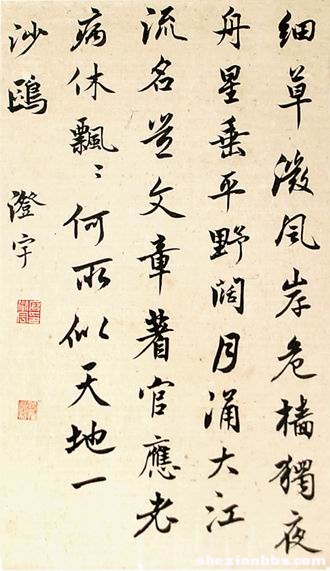 細草微風岸危檣獨夜
舟星垂平野闊月涌大江
流名豈文章著官應老
病休飄〻何所似天地一
沙鷗
澄宇
shexianbbs.com